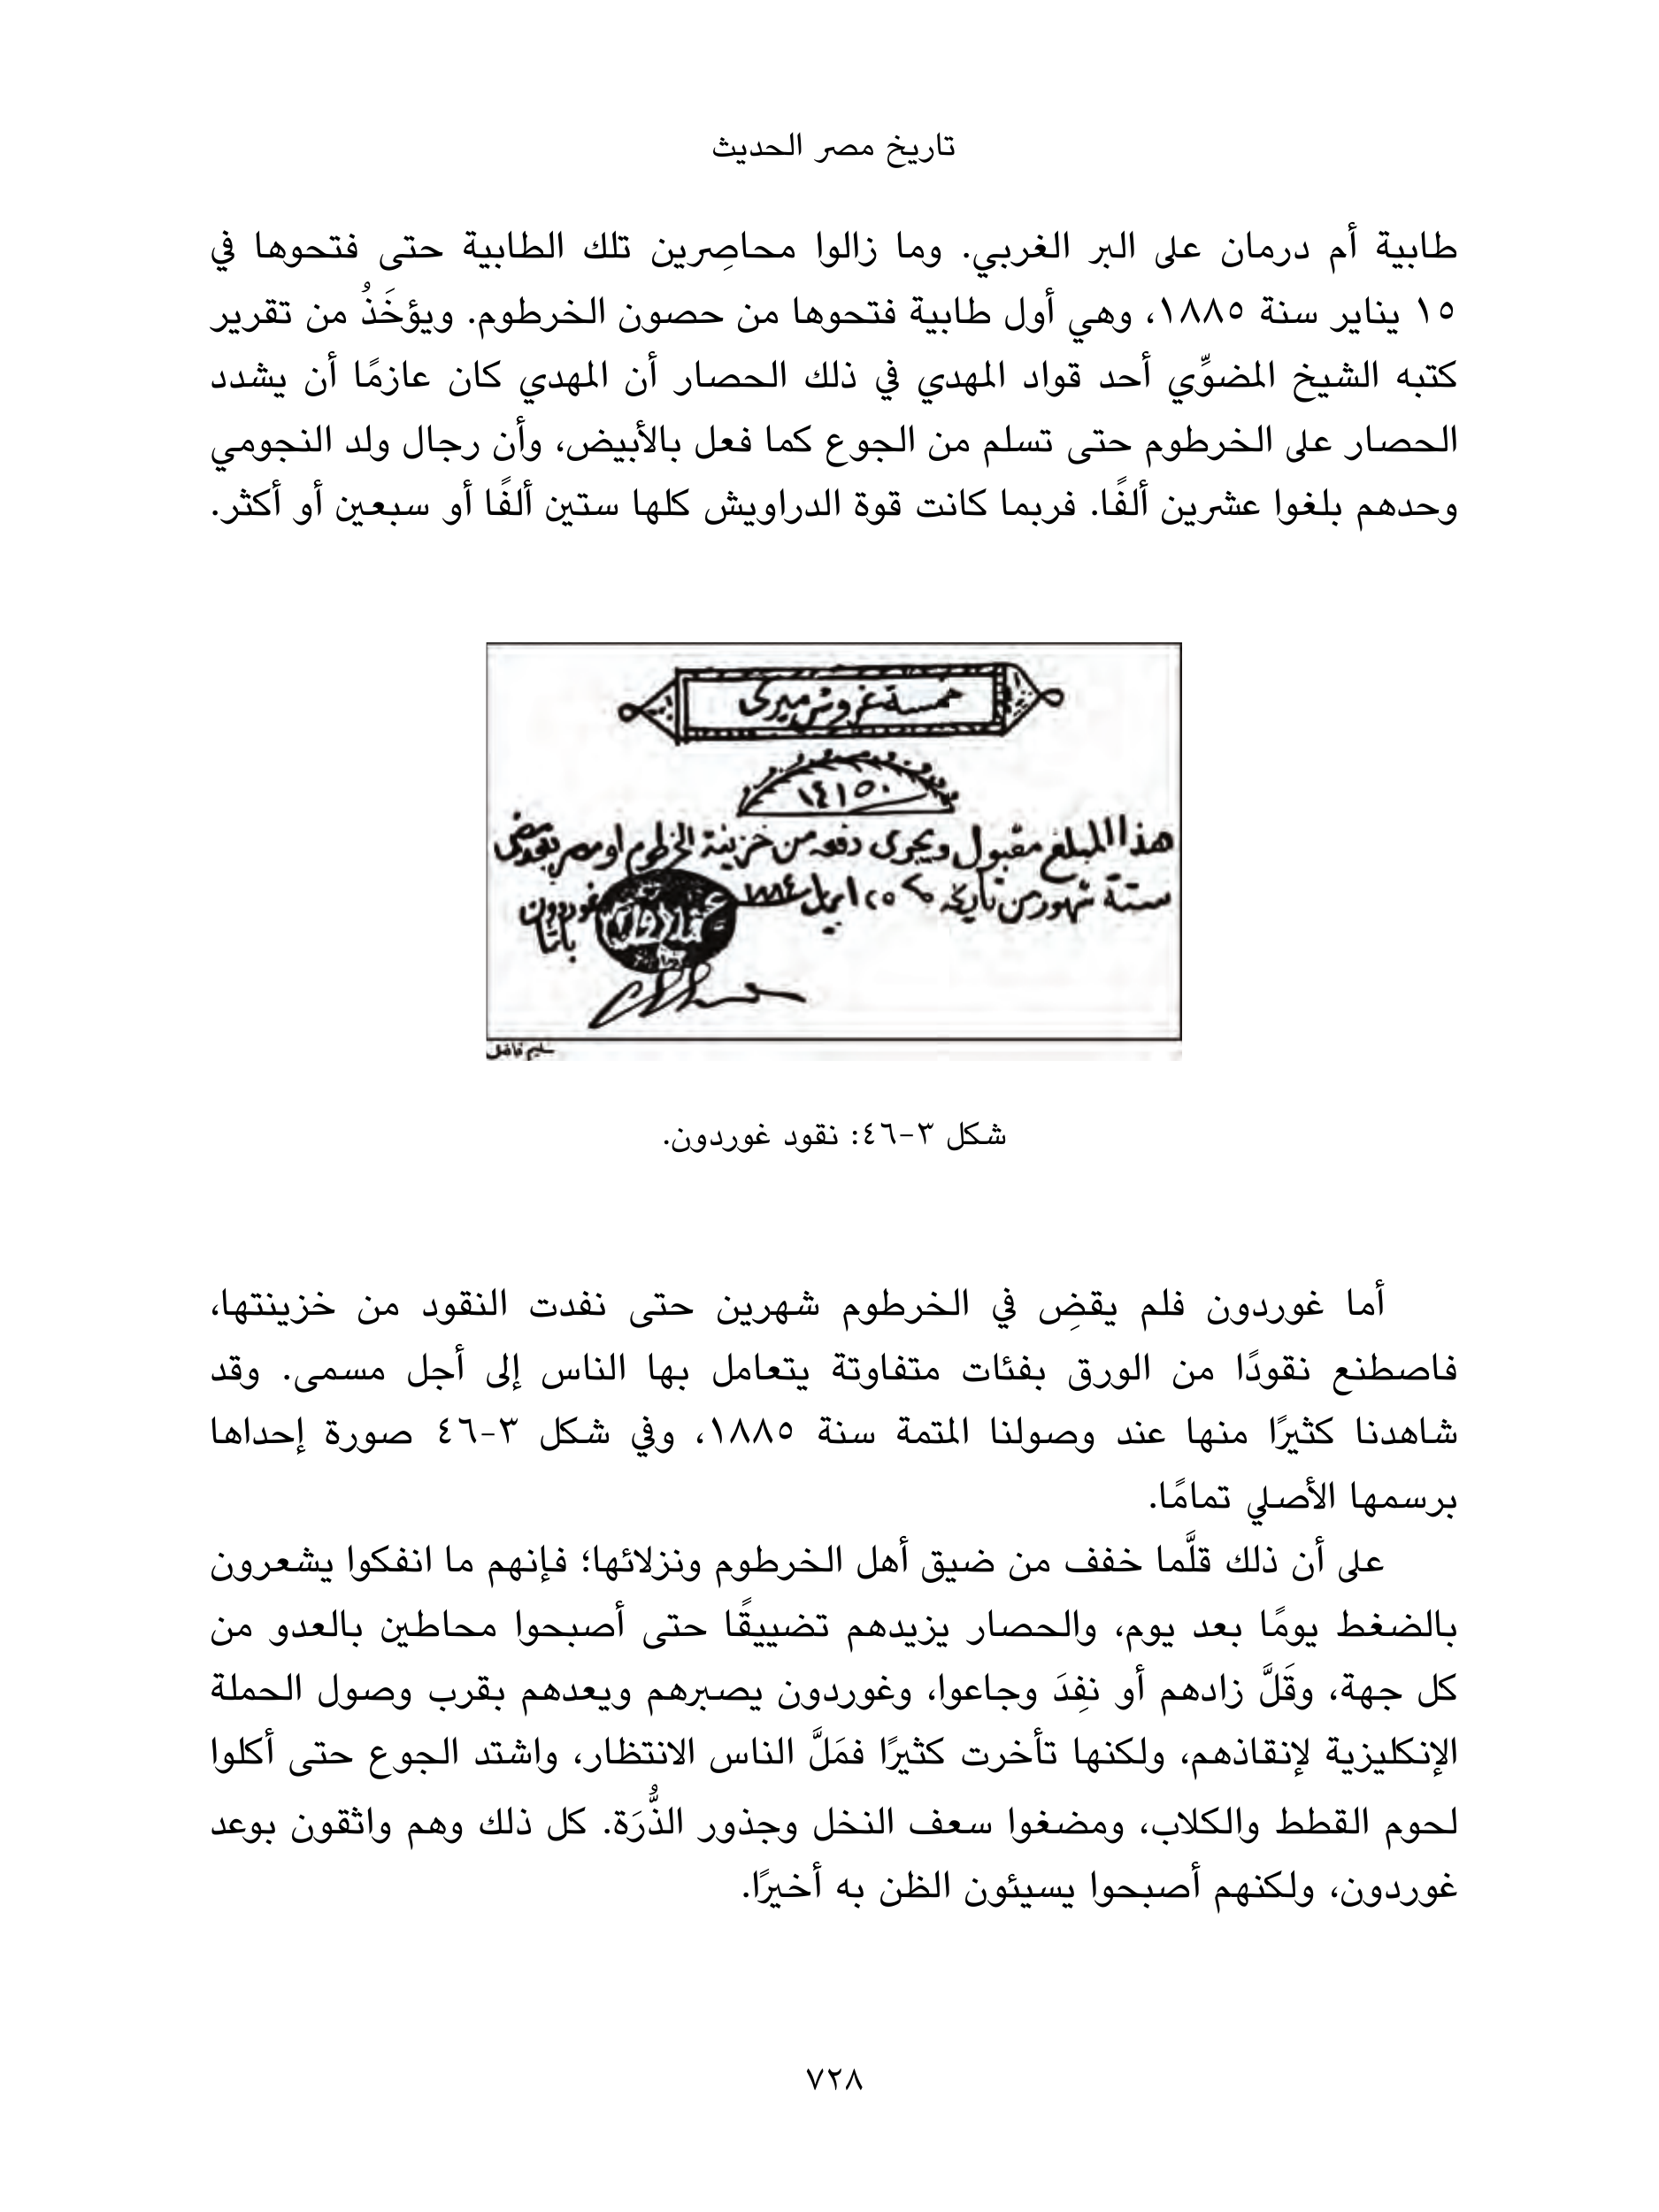 تاريخ مصر الحديث
طابية أم درمان على البر الغربي. وما زالوا محاصِرين تلك الطابية حتى فتحوها في
١٥ يناير سنة ١٨٨٥، وهي أول طابية فتحوها من حصون الخرطوم. ويؤخَذُ من تقرير
كتبه الشيخ المضوِّي أحد قواد المهدي في ذلك الحصار أن المهدي كان عازمًا أن يشدد
الحصار على الخرطوم حتى تسلم من الجوع كما فعل بالأبيض، وأن رجال ولد النجومي
وحدهم بلغوا عشرين ألفًا. فربما كانت قوة الدراويش كلها ستين ألفًا أو سبعين أو أكثر.
خمسة غروش ميرى
١٤١٥٠
هذا المبلغ مقبول ويجرى دفعه من خزينة الخرطوم او مصر بعد مضى
ستة شهور من تاريخه ٢٥ ابريل ١٨٨٤ غوردون
باشا
سليم فاضل
شكل ٣-٤٦: نقود غوردون.
أما غوردون فلم يقضِ في الخرطوم شهرين حتى نفدت النقود من خزينتها،
فاصطنع نقودًا من الورق بفئات متفاوتة يتعامل بها الناس إلى أجل مسمى. وقد
شاهدنا كثيرًا منها عند وصولنا المتمة سنة ١٨٨٥، وفي شكل ٣-٤٦ صورة إحداها
برسمها الأصلي تمامًا.
على أن ذلك قلَّما خفف من ضيق أهل الخرطوم ونزلائها؛ فإنهم ما انفكوا يشعرون
بالضغط يومًا بعد يوم، والحصار يزيدهم تضييقًا حتى أصبحوا محاطين بالعدو من
كل جهة، وقَلَّ زادهم أو نفِدَ وجاعوا، وغوردون يصبرهم ويعدهم بقرب وصول الحملة
الإنكليزية لإنقاذهم، ولكنها تأخرت كثيرًا فمَلَّ الناس الانتظار، واشتد الجوع حتى أكلوا
لحوم القطط والكلاب، ومضغوا سعف النخل وجذور الذُّرَة. كل ذلك وهم واثقون بوعد
غوردون، ولكنهم أصبحوا يسيئون الظن به أخيرًا.
٧٢٨